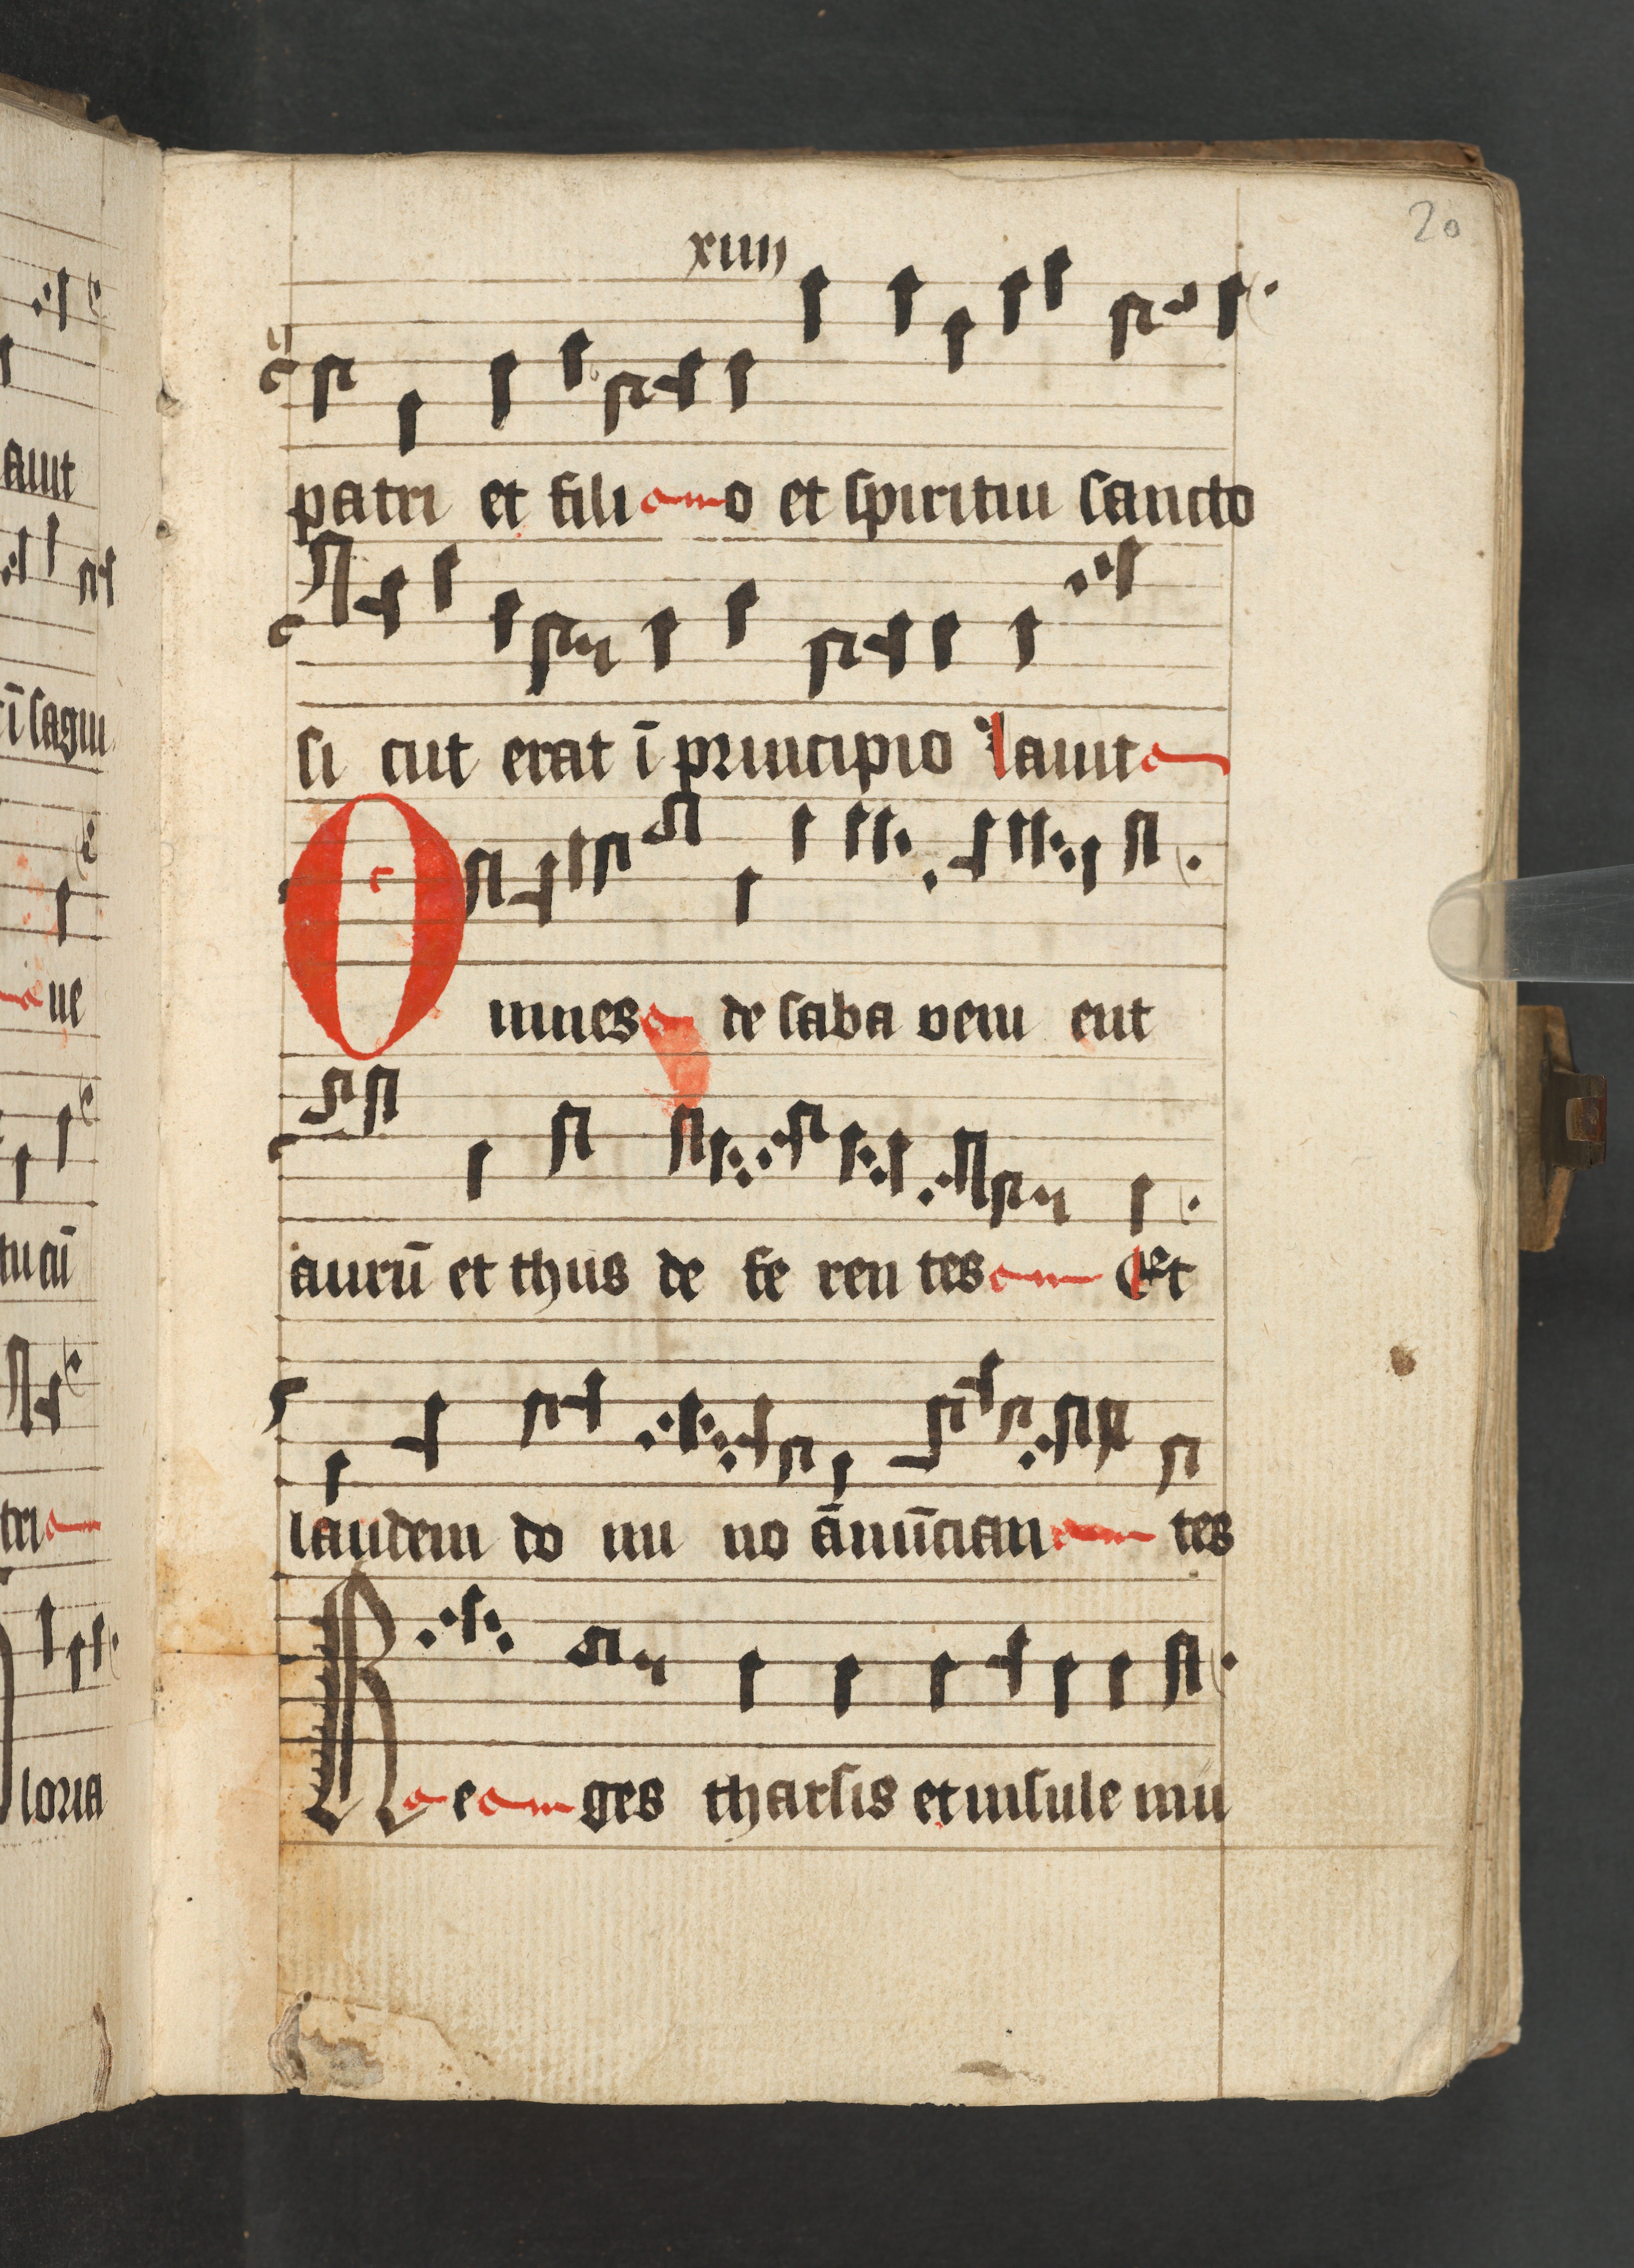 20
xiiij
patri et filio et spiritui sancto
si cut erat ī principio Lauit
Omnes de saba veni ent
aurū et thus de fe ren tes Et
laudem do mi no ānūcian tes
Re ges tharsis et insule mu
auit
ī sagui
ue
tu cū
tri
loria